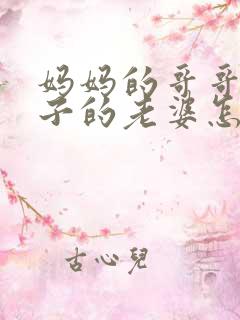 妈妈的哥哥
子的老婆怎
古心兒